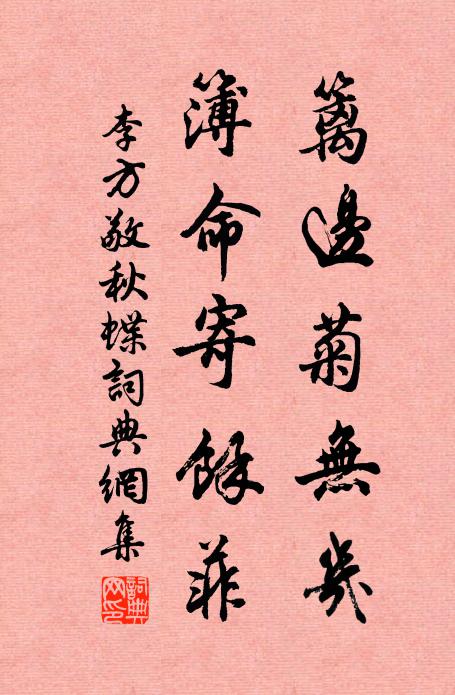 籬邊菊無幾
薄命寄餘菲
李方敬秋蝶詞典網集
詞典網印